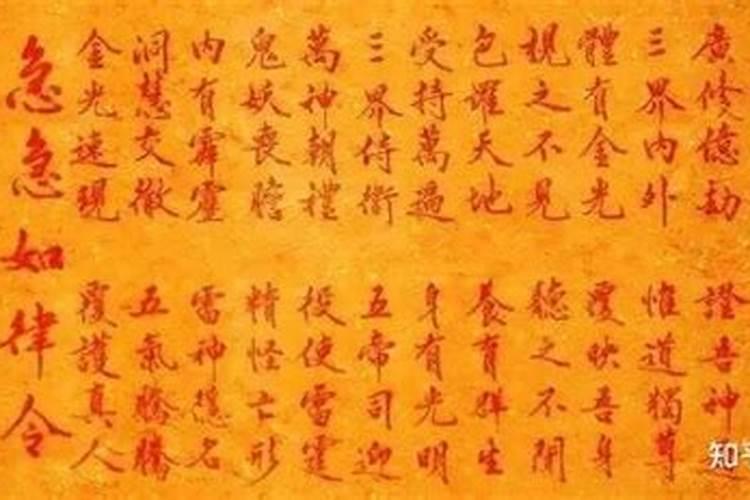 廣修億劫 證吾神
三界內外 惟道獨尊
體有金光 覆映吾身
視之不見 聽之不聞
包羅天地 養育群生
受持萬遍 身有光明
三界侍衛 五帝司迎
萬神朝禮 役使雷霆
鬼妖喪膽 精怪亡形
內有霹靂 雷神隱名
洞慧交徹 五氣騰騰
金光速現 覆護真人
急急如律令
知乎